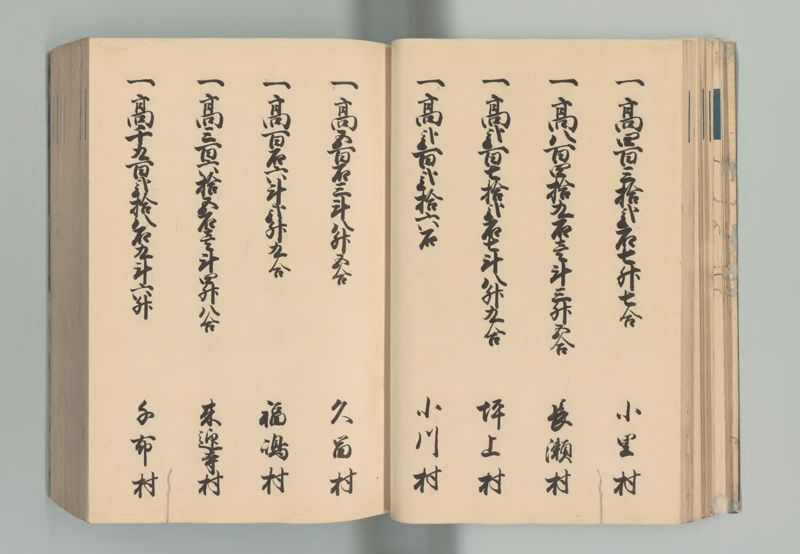 一高四百三拾弐石七升七合 小里村
一高八百四拾九石壱斗三升五合 長瀬村
一高弐百七拾弐石七斗八升九合 坪上村
一高弐百弐拾六石 小川村
一高五百石三斗八升五合 久留村
一高百石六斗弐升九合 福嶋村
一高三百八拾五石壱斗四升八合 来迎寺村
一高千九百弐拾八石九斗六升 手布村